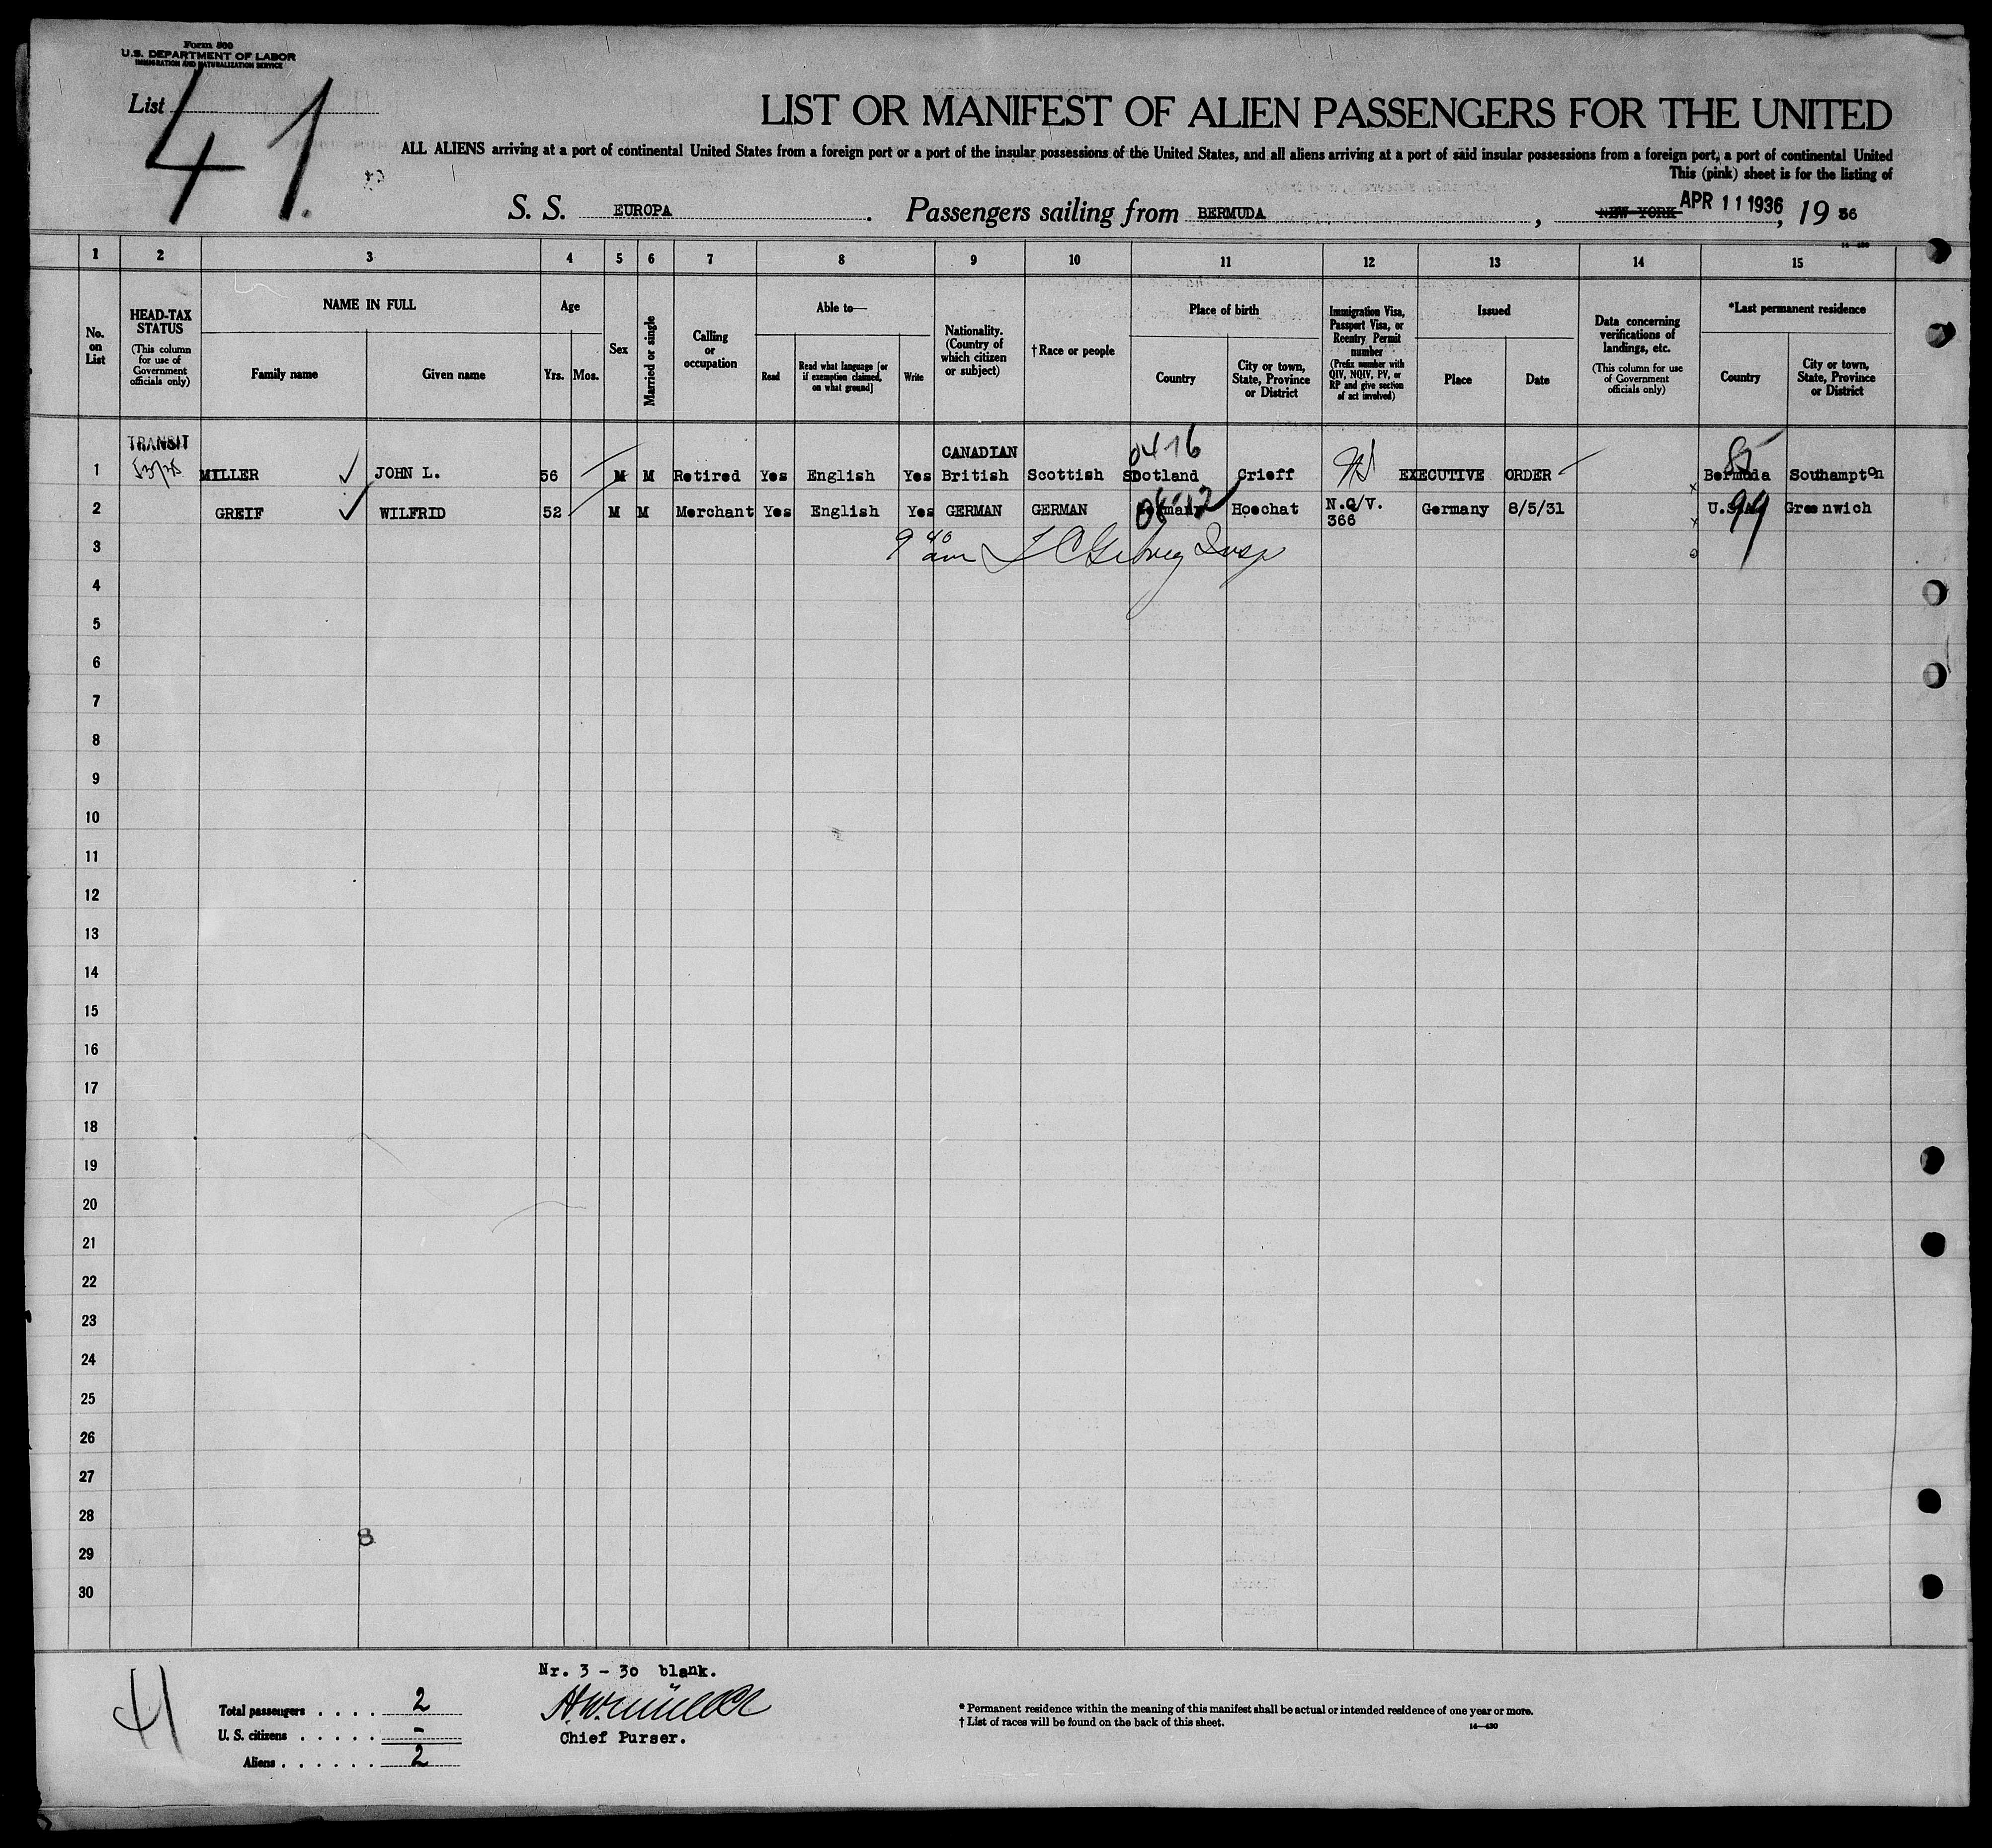 Form 500
U.S. DEPARTMENT OF LABOR
IMMIGRATION AND NATURALIZATION SERVICE
List 41.
LIST OR MANIFEST OF ALIEN PASSENGERS FOR THE UNITED
ALL ALIENS arriving at a port of continental United States from a foreign port or a port of the insular possessions of the United States, and all aliens arriving at a port of said insular possessions from a foreign port, a port of continental United
This (pink) sheet is for the listing of
S. S. EUROPA. Passengers sailing from BERMUDA, NEW YORK APR 11 1936, 19 36
1 2 3 4 5 6 7 8 9 10 11 12 13 14 15
No. on List
HEAD-TAX STATUS
(This column for use of Government officials only)
NAME IN FULL
Family name
Given name
Age
Yrs. Mos.
Sex
Married or single
Calling or occupation
Able to—
Read
Read what language [or if exemption claimed, on what ground]
Write
Nationality. (Country of which citizen or subject)
†Race or people
Place of birth
Country
City or town, State, Province or District
Immigration Visa, Passport Visa, or Reentry Permit number
(Prefix number with QIV, NQIV, PV, or RP and give section of act involved)
Issued
Place
Date
Data concerning verifications of landings, etc.
(This column for use of Government officials only)
*Last permanent residence
Country
City or town, State, Province or District
TRANSIT CANADIAN 0416 85
1 MILLER JOHN L. 56 M M Retired Yes English Yes British Scottish Scotland Crieff EXECUTIVE ORDER Bermuda Southampton
2 GREIF WILFRID 52 M M Merchant Yes English Yes GERMAN GERMAN Hoechat N.Q/V. 366 Germany 8/5/31 99 Greenwich
3 9 40 am
4
5
6
7
8
9
10
11
12
13
14
15
16
17
18
19
20
21
22
23
24
25
26
27
28
8
29
30
Nr. 3 - 30 blank.
Total passengers . . . . 2
U. S. citizens . . . . . -
Aliens . . . . . . 2
Chief Purser.
* Permanent residence within the meaning of this manifest shall be actual or intended residence of one year or more.
† List of races will be found on the back of this sheet.
14—430